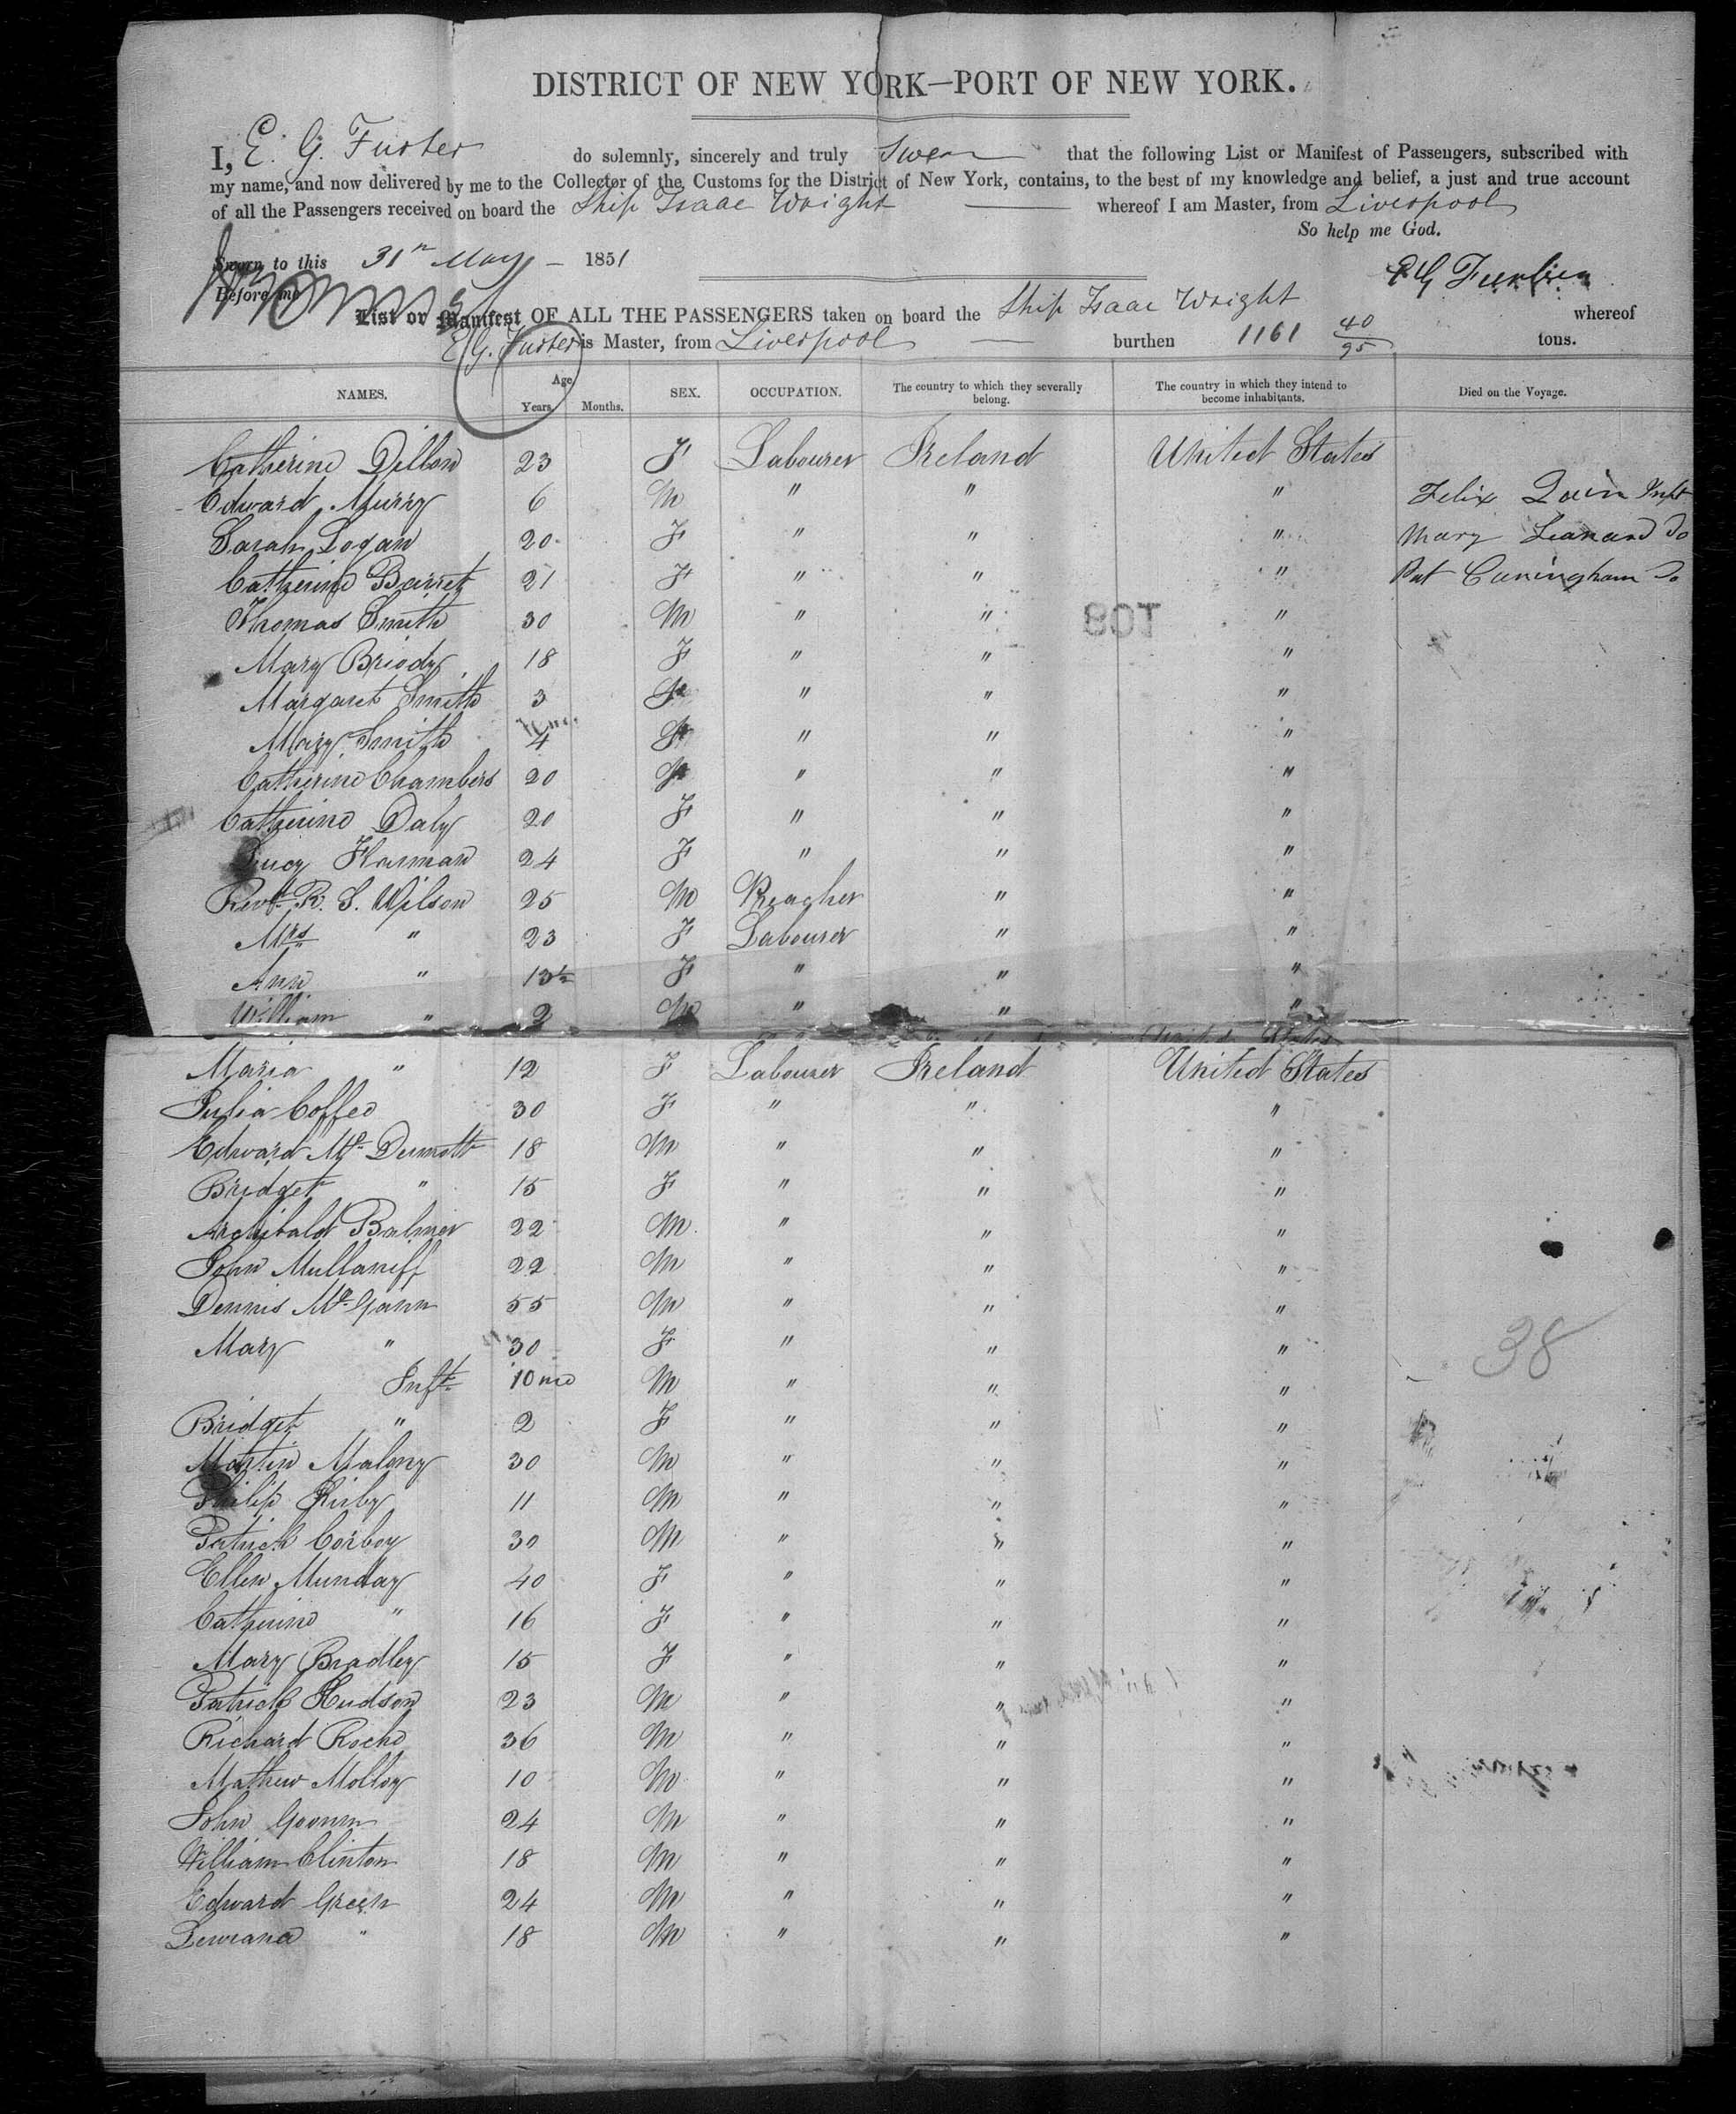 DISTRICT OF NEW YORK—PORT OF NEW YORK.
I, E. G. Furber do solemnly, sincerely and truly Swear that the following List or Manifest of Passengers, subscribed with
my name, and now delivered by me to the Collector of the Customs for the District of New York, contains, to the best of my knowledge and belief, a just and true account
of all the Passengers received on board the Ship Isaac Wright whereof I am Master, from Liverpool
So help me God.
Sworn to this 31st May 1851
E G Furber
Before me
List or Manifest OF ALL THE PASSENGERS taken on board the Ship Isaac Wright whereof
E. G. Furber is Master, from Liverpool burthen 1161 40/95 tons.
NAMES. Age Years. Months. SEX. OCCUPATION. The country to which they severally belong. The country in which they intend to become inhabitants. Died on the Voyage.
Catherine Dillon 23 F Labourer Ireland United States
Edward Murry 6 M " " " Felix Quin Inft
Sarah Logan 20 F " " " Mary Leanard Do
Catherine Barret 21 F " " " Pat Cuningham Do
Thomas Smith 30 M " " "
108
Mary Briody 18 F " " "
Margaret Smith 3 F " " "
Mary Smith 4 F " " "
Catherine Chambers 20 F " " "
Catherine Daly 20 F " " "
Lucy Harman 24 F " " "
Revd. R. S. Wilson 25 M Preacher " "
Mrs " 23 F Labourer " "
Ann " 13 F " " "
William " 2 M " " "
Maria " 12 F Labourer Ireland United States
Julia Coffee 30 F " " "
Edward McDermott 18 M " " "
Bridget " 15 F " " "
Archibald Balmer 22 M " " "
John Mullaniff 22 M " " "
Dennis McGann 55 M " " "
Mary " 30 F " " "
38
Inft. 10 mo M " " "
Bridget " 2 F " " "
Martin Malony 30 M " " "
Philip Kirby 11 M " " "
Patrick Corboy 30 M " " "
Ellen Munday 40 F " " "
Catherine " 16 F " " "
Mary Bradley 15 F " " "
Patrick Hudson 23 M " " "
Richard Roche 36 M " " "
Mathew Molloy 10 M " " "
John 24 M " " "
William Clinton 18 M " " "
Edward Green 24 M " " "
" 18 M " " "